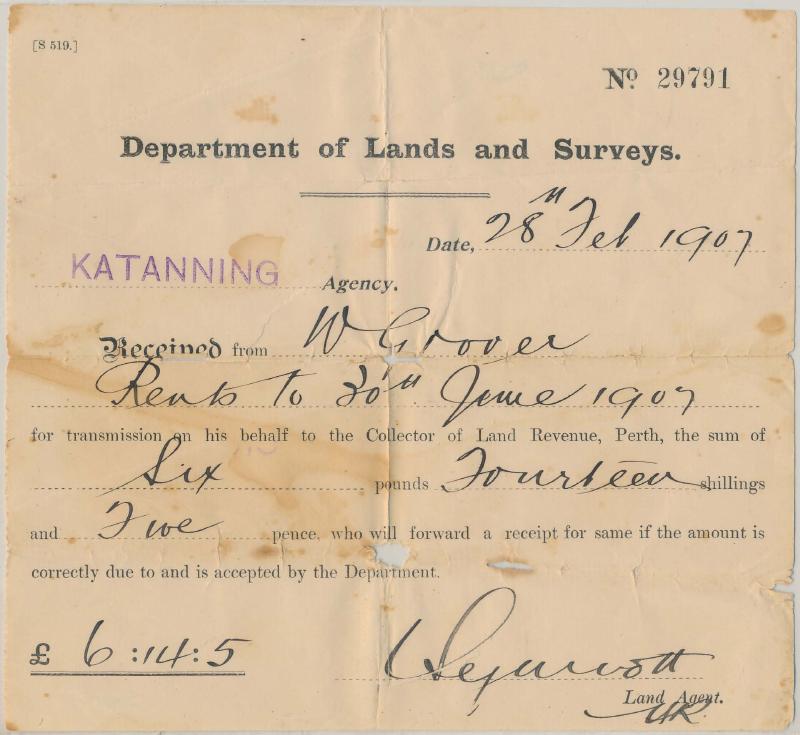 [S 519.]
No 29791
Department of Lands and Surveys.
Date, 28th Feb 1907
KATANNING Agency.
Received from W Grover
Rents to 30th June 1907
for transmission on his behalf to the Collector of Land Revenue, Perth, the sum of
Six pounds Fourteen shillings
and Five pence, who will forward a receipt for same if the amount is
correctly due to and is accepted by the Department.
£ 6:14:5
Land Agent.